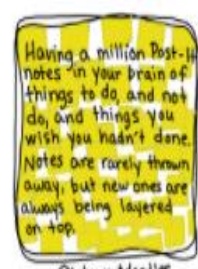 Having a million Post-It
notes in your brain of
things to do, and not
do, and things you
wish you hadn't done.
Notes are rarely thrown
away, but new ones are
always being layered
on top.